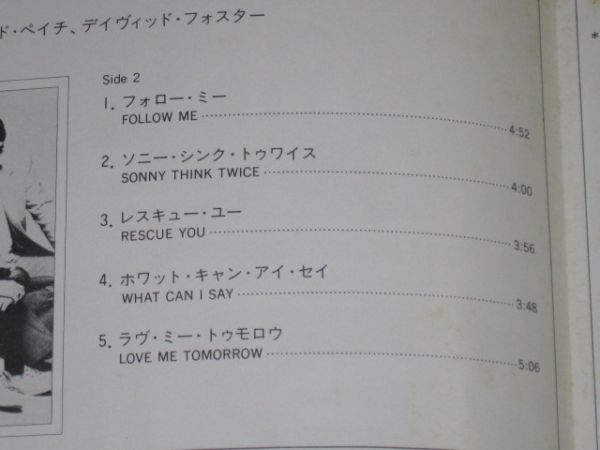 ド・ペイチ、デイヴィッド・フォスター
Side 2
1. フォロー・ミー
FOLLOW ME 4:52
2. ソニー・シンク・トゥワイス
SONNY THINK TWICE 4:00
3. レスキュー・ユー
RESCUE YOU 3:56
4. ホワット・キャン・アイ・セイ
WHAT CAN I SAY 3:48
5. ラヴ・ミー・トゥモロウ
LOVE ME TOMORROW 5:06
*